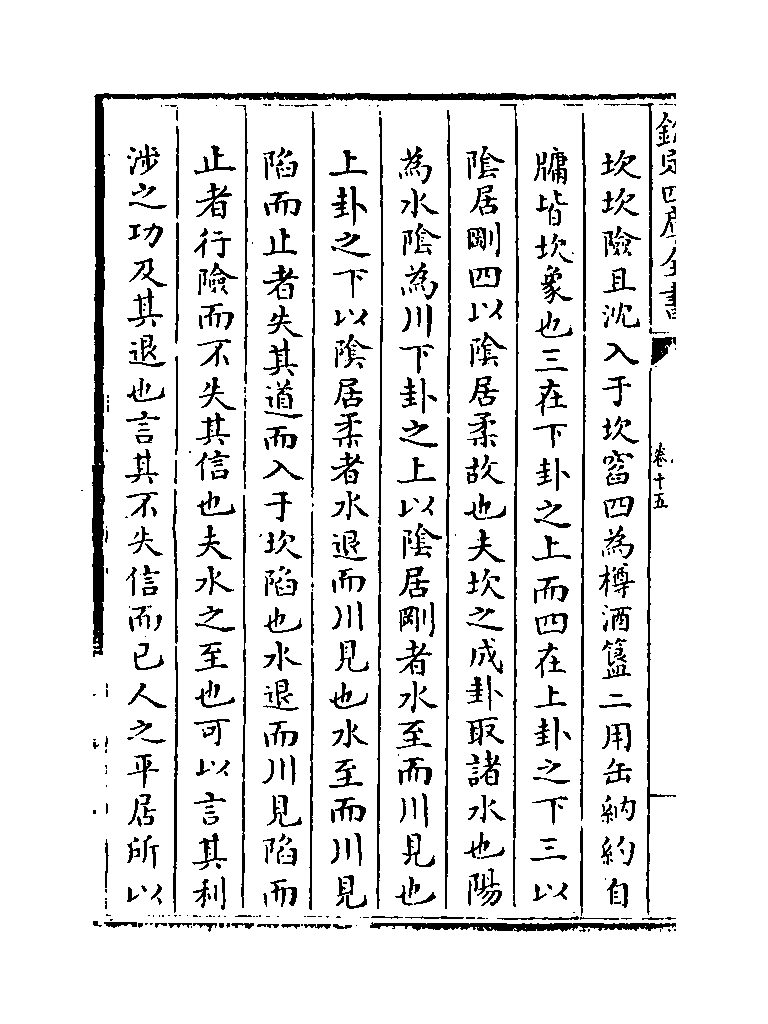 欽定四庫全書
卷十五
坎坎險且沈入于坎窞四為樽酒簋二用缶納約自
牖皆坎象也三在下卦之上而四在上卦之下三以
陰居剛四以陰居柔故也夫坎之成卦取諸水也陽
為水陰為川下卦之上以陰居剛者水至而川見也
上卦之下以陰居柔者水退而川見也水至而川見
陷而止者失其道而入于坎陷也水退而川見陷而
止者行險而不失其信也夫水之至也可以言其利
涉之功及其退也言其不失信而已人之平居所以